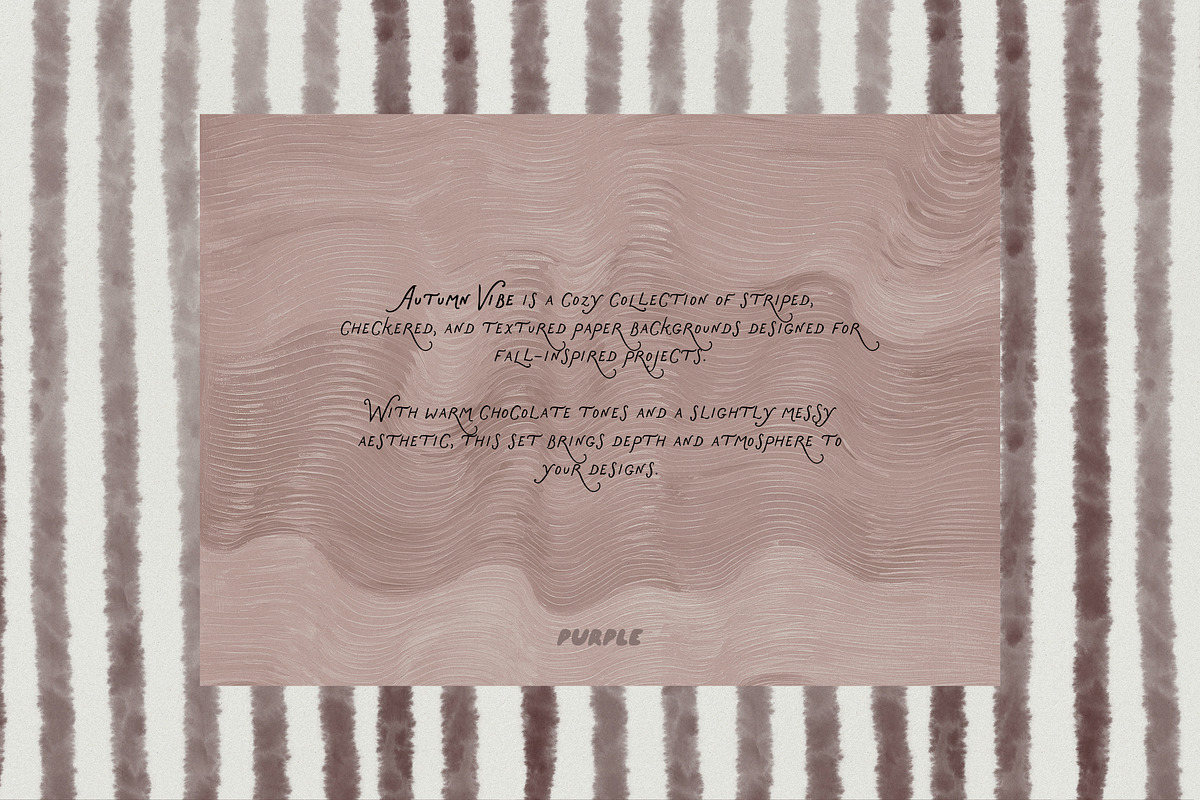 Autumn Vibe is a cozy collection of striped,
checkered, and textured paper backgrounds designed for
fall-inspired projects.
With warm chocolate tones and a slightly messy
aesthetic, this set brings depth and atmosphere to
your designs.
PURPLE